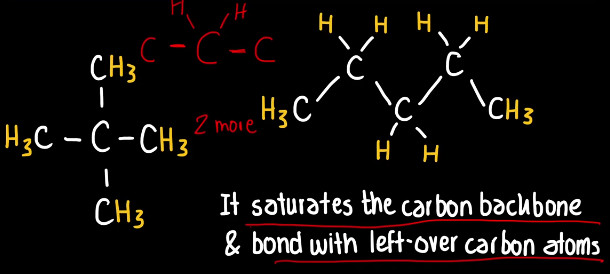 H H
C - C - C
CH3
H3C - C - CH3
CH3
2 more
H H H H
C C
H3C C CH3
H H
It saturates the carbon backbone
& bond with left-over carbon atoms